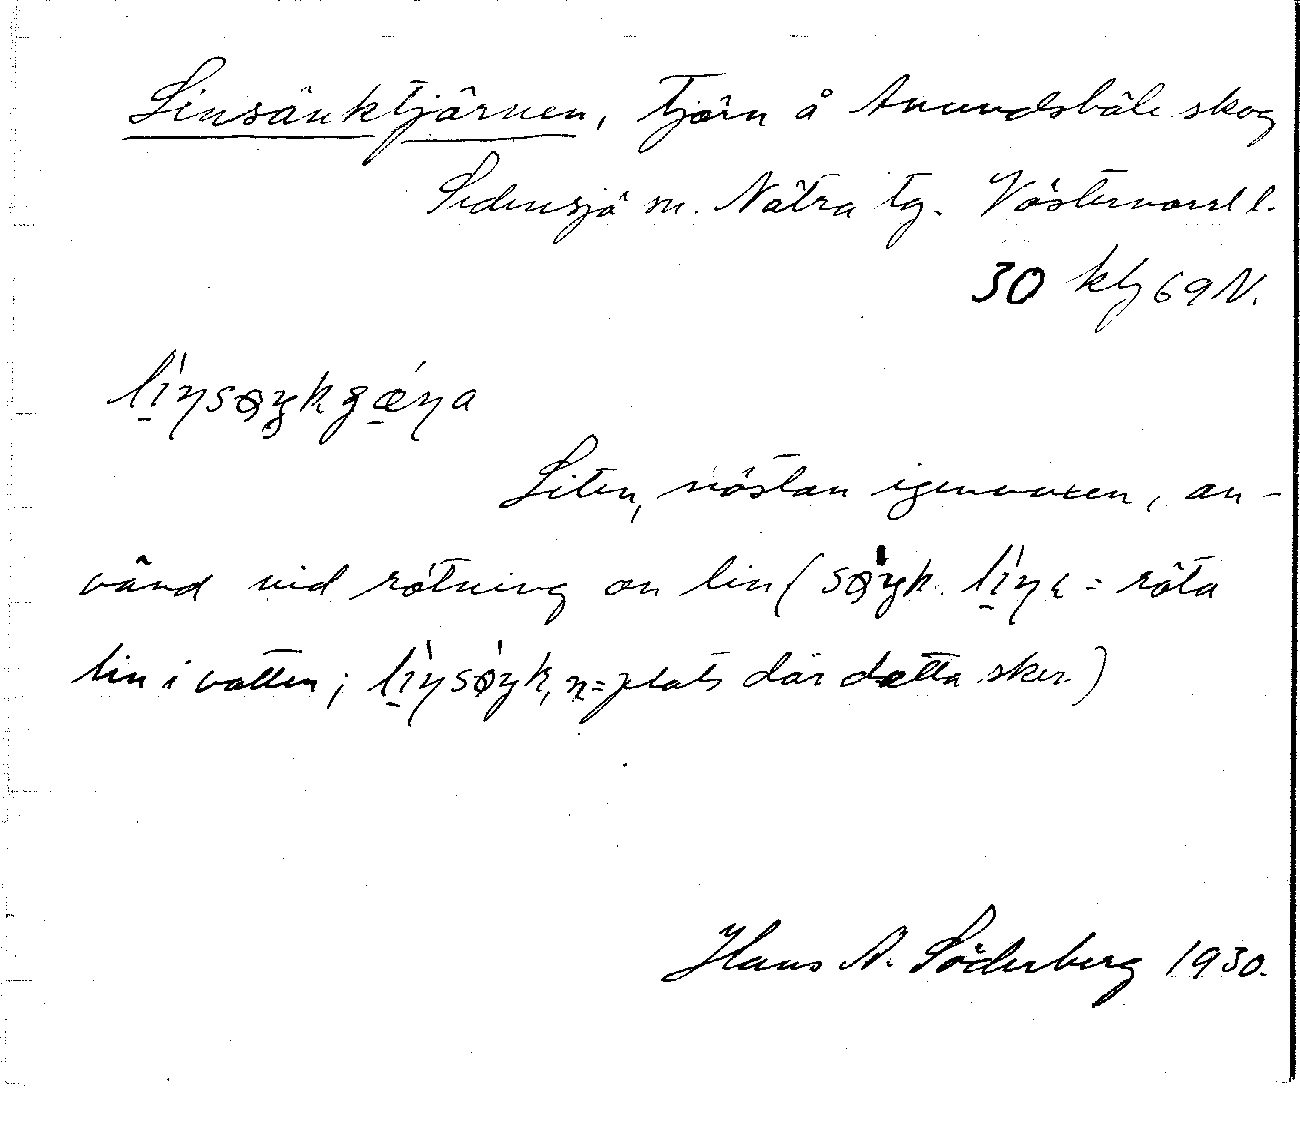 Linsänktjärnen, tjärn å Anundsbäle skog
Sidensjö sn. Nätra tg. Västernorrl l.
30 kbl 69 N.
li̱ŋsøŋkgæ̱ŋa
Liten, nästan igenvuxen, an-
vänd vid rötning av lin (søŋk li̱ŋe = röta
lin i vatten; li̱ŋsøŋk, n = plats där detta sker.)
Hans N. Söderberg 1930.